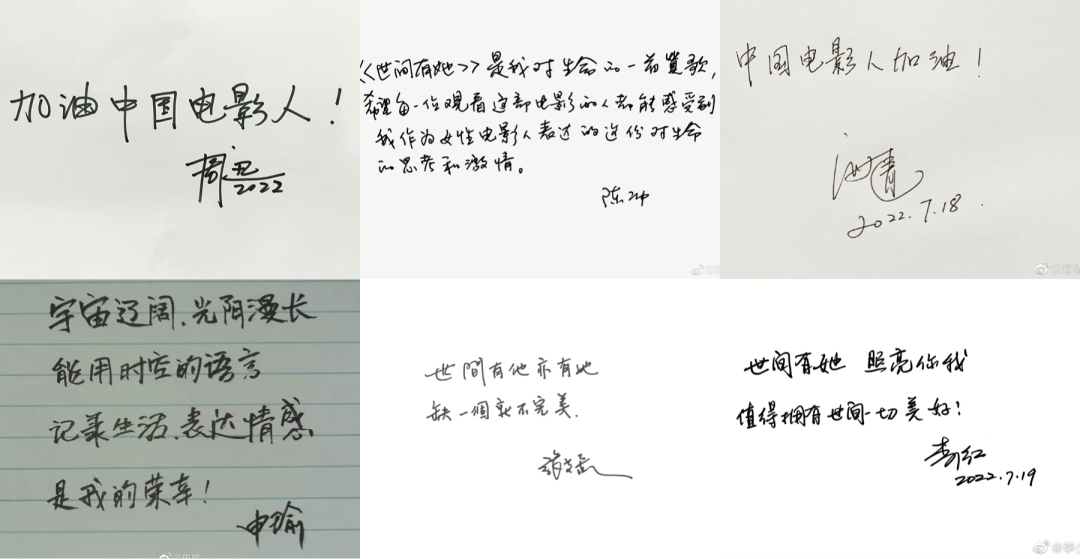 加油中国电影人!
周迅
2022
《世间有她》是我对生命的一首赞歌,
希望每一位观看这部电影的人都能感受到
我作为女性电影人表达的这份对生命
的思考和激情。
陈冲
中国电影人加油!
2022.7.18
宇宙辽阔,光阴漫长
能用时空的语言
记录生活,表达情感
是我的荣幸!
申瑜
世間有他亦有她
缺一個就不完美.
世间有她 照亮你我
值得拥有世间一切美好!
李少红
2022.7.19